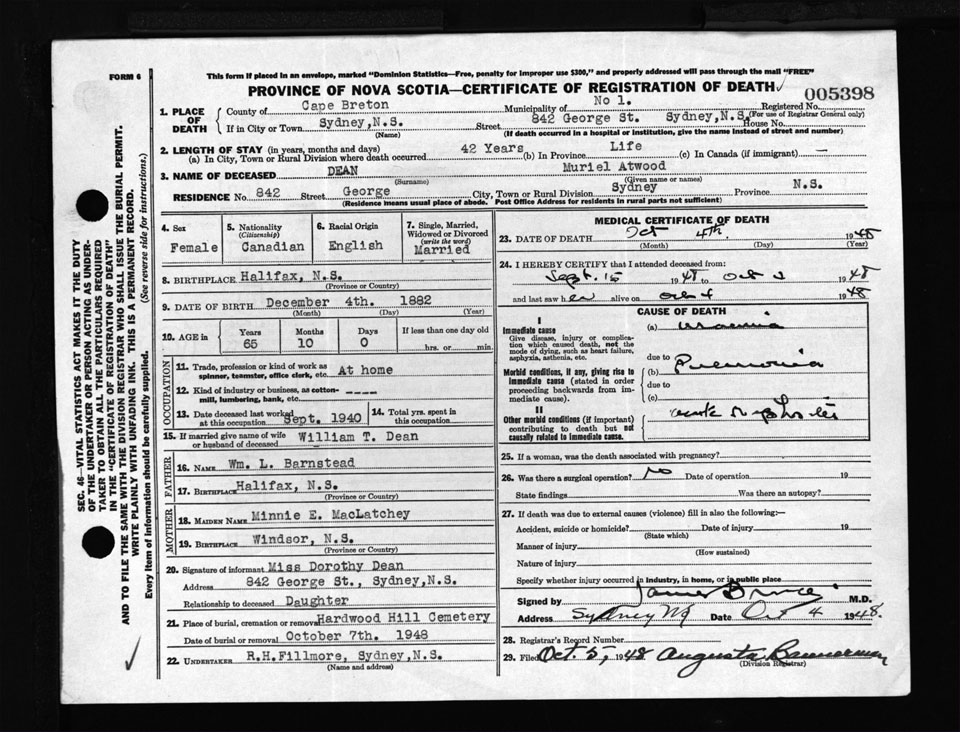 FORM 6
This form if placed in an envelope, marked "Dominion Statistics—Free, penalty for improper use $300," and properly addressed will pass through the mail "FREE"
PROVINCE OF NOVA SCOTIA—CERTIFICATE OF REGISTRATION OF DEATH
005398
1. PLACE OF DEATH
County of Cape Breton Municipality of No 1. Registered No.
(For use of Registrar General only)
If in City or Town Sydney, N.S. Street 842 George St. Sydney, N.S. House No.
(Name) (If death occurred in a hospital or institution, give the name instead of street and number)
2. LENGTH OF STAY (in years, months and days)
(a) In City, Town or Rural Division where death occurred 42 Years (b) In Province Life (c) In Canada (if immigrant) —
3. NAME OF DECEASED DEAN Muriel Atwood
(Surname) (Given name or names)
RESIDENCE No. 842 Street George City, Town or Rural Division Sydney Province N.S.
(Residence means usual place of abode. Post Office Address for residents in rural parts not sufficient)
SEC. 46—VITAL STATISTICS ACT MAKES IT THE DUTY
OF THE UNDERTAKER OR PERSON ACTING AS UNDER-
TAKER TO OBTAIN ALL THE PARTICULARS REQUIRED
IN THE "CERTIFICATE OF REGISTRATION OF DEATH"
AND TO FILE THE SAME WITH THE DIVISION REGISTRAR WHO SHALL ISSUE THE BURIAL PERMIT.
WRITE PLAINLY WITH UNFADING INK. THIS IS A PERMANENT RECORD.
Every item of information should be carefully supplied. (See reverse side for instructions.)
4. Sex Female
5. Nationality (Citizenship) Canadian
6. Racial Origin English
7. Single, Married, Widowed or Divorced (write the word) Married
8. BIRTHPLACE Halifax, N.S.
(Province or Country)
9. DATE OF BIRTH December 4th. 1882
(Month) (Day) (Year)
10. AGE in Years 65 Months 10 Days 0 If less than one day old hrs. or min.
OCCUPATION
11. Trade, profession or kind of work as spinner, teamster, office clerk, etc. At home
12. Kind of industry or business, as cotton-mill, lumbering, bank, etc. -----
13. Date deceased last worked at this occupation Sept. 1940
14. Total yrs. spent in this occupation
15. If married give name of wife or husband of deceased William T. Dean
FATHER
16. NAME Wm. L. Barnstead
17. BIRTHPLACE Halifax, N.S.
(Province or Country)
MOTHER
18. MAIDEN NAME Minnie E. MacLatchey
19. BIRTHPLACE Windsor, N.S.
(Province or Country)
20. Signature of informant Miss Dorothy Dean
Address 842 George St., Sydney, N.S.
Relationship to deceased Daughter
21. Place of burial, cremation or removal Hardwood Hill Cemetery
Date of burial or removal October 7th. 1948
22. UNDERTAKER R.H.Fillmore, Sydney, N.S.
(Name and address)
MEDICAL CERTIFICATE OF DEATH
23. DATE OF DEATH Oct 4th. 1948
(Month) (Day) (Year)
24. I HEREBY CERTIFY that I attended deceased from:
Sept. 15 1948 to Oct 1948
and last saw her alive on Oct 4 1948
CAUSE OF DEATH
I
Immediate cause
Give disease, injury or complication which caused death, not the mode of dying, such as heart failure, asphyxia, asthenia, etc.
(a)
due to
Morbid conditions, if any, giving rise to immediate cause (stated in order proceeding backwards from immediate cause).
(b) Pneumonia
due to
(c)
II
Other morbid conditions (if important) contributing to death but not causally related to immediate cause.
25. If a woman, was the death associated with pregnancy?
26. Was there a surgical operation? No Date of operation 19
State findings Was there an autopsy?
27. If death was due to external causes (violence) fill in also the following:—
Accident, suicide or homicide? Date of injury 19
(State which)
Manner of injury
(How sustained)
Nature of injury
Specify whether injury occurred in industry, in home, or in public place
Signed by James Bruce M.D.
Address Sydney NS Date Oct 4 1948.
28. Registrar's Record Number
29. Filed Oct. 5, 1948 Augusta Bannerman
(Division Registrar)